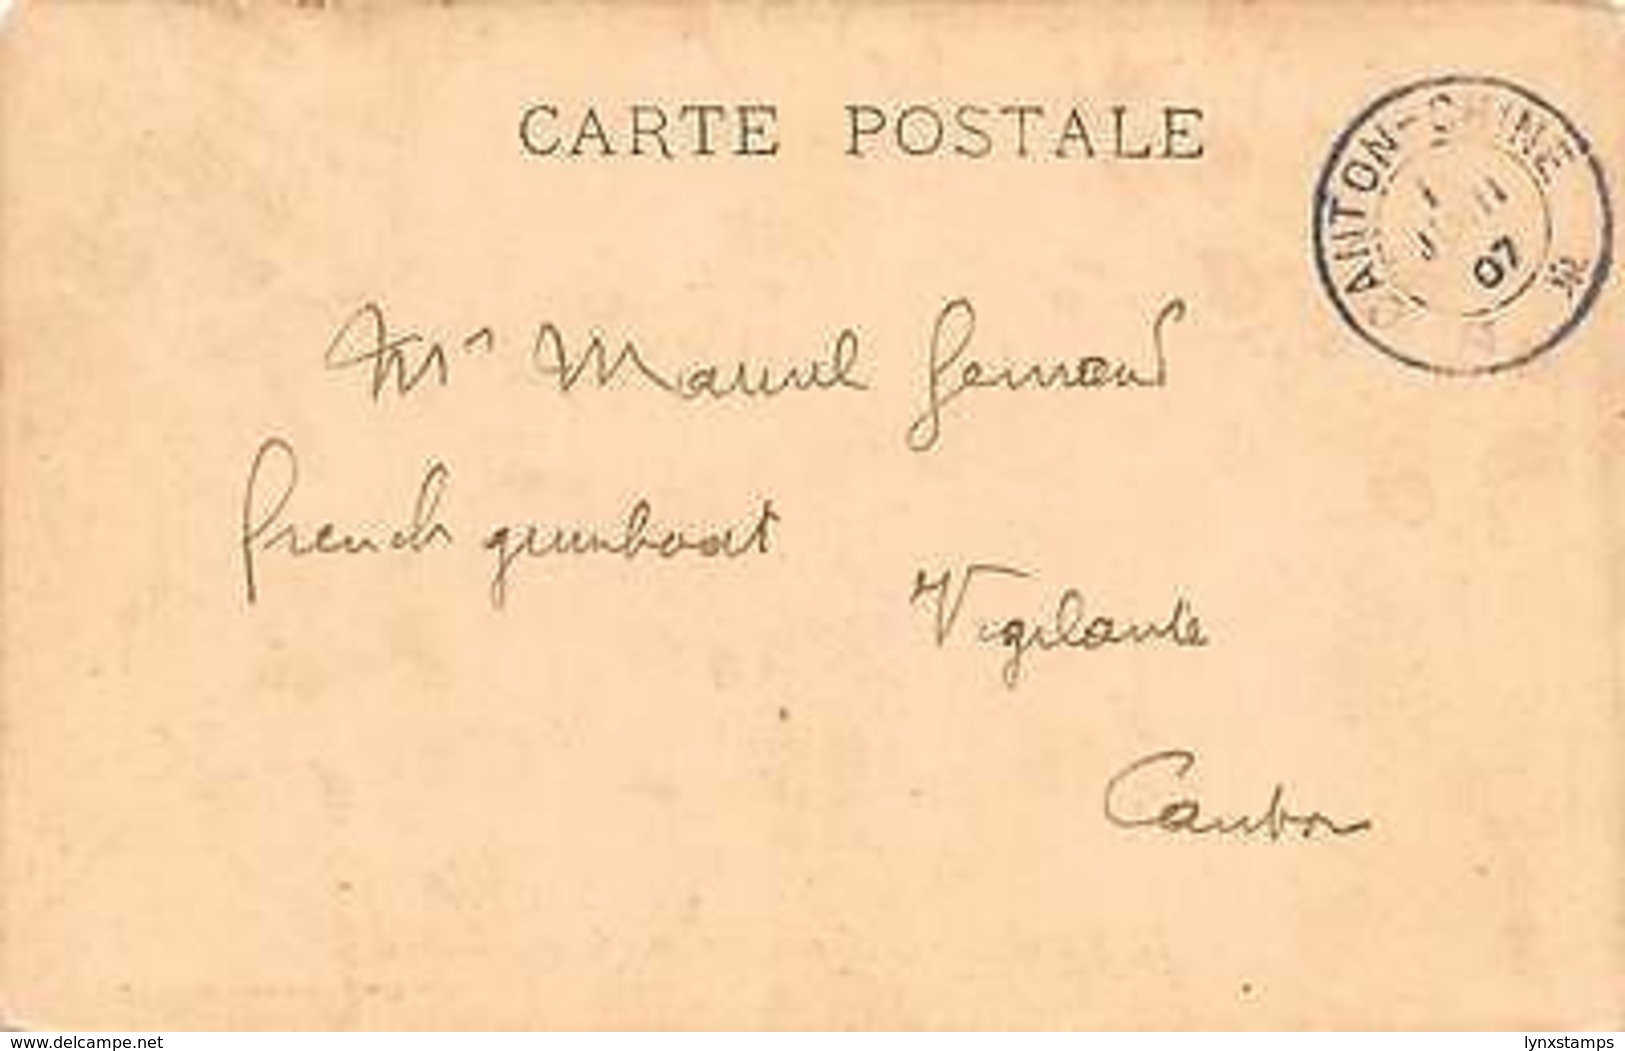 CARTE POSTALE
CANTON-CHINE
07
Mr Marcel
french gunboat
Vigilante
Canton
www.delcampe.net
lynxstamps